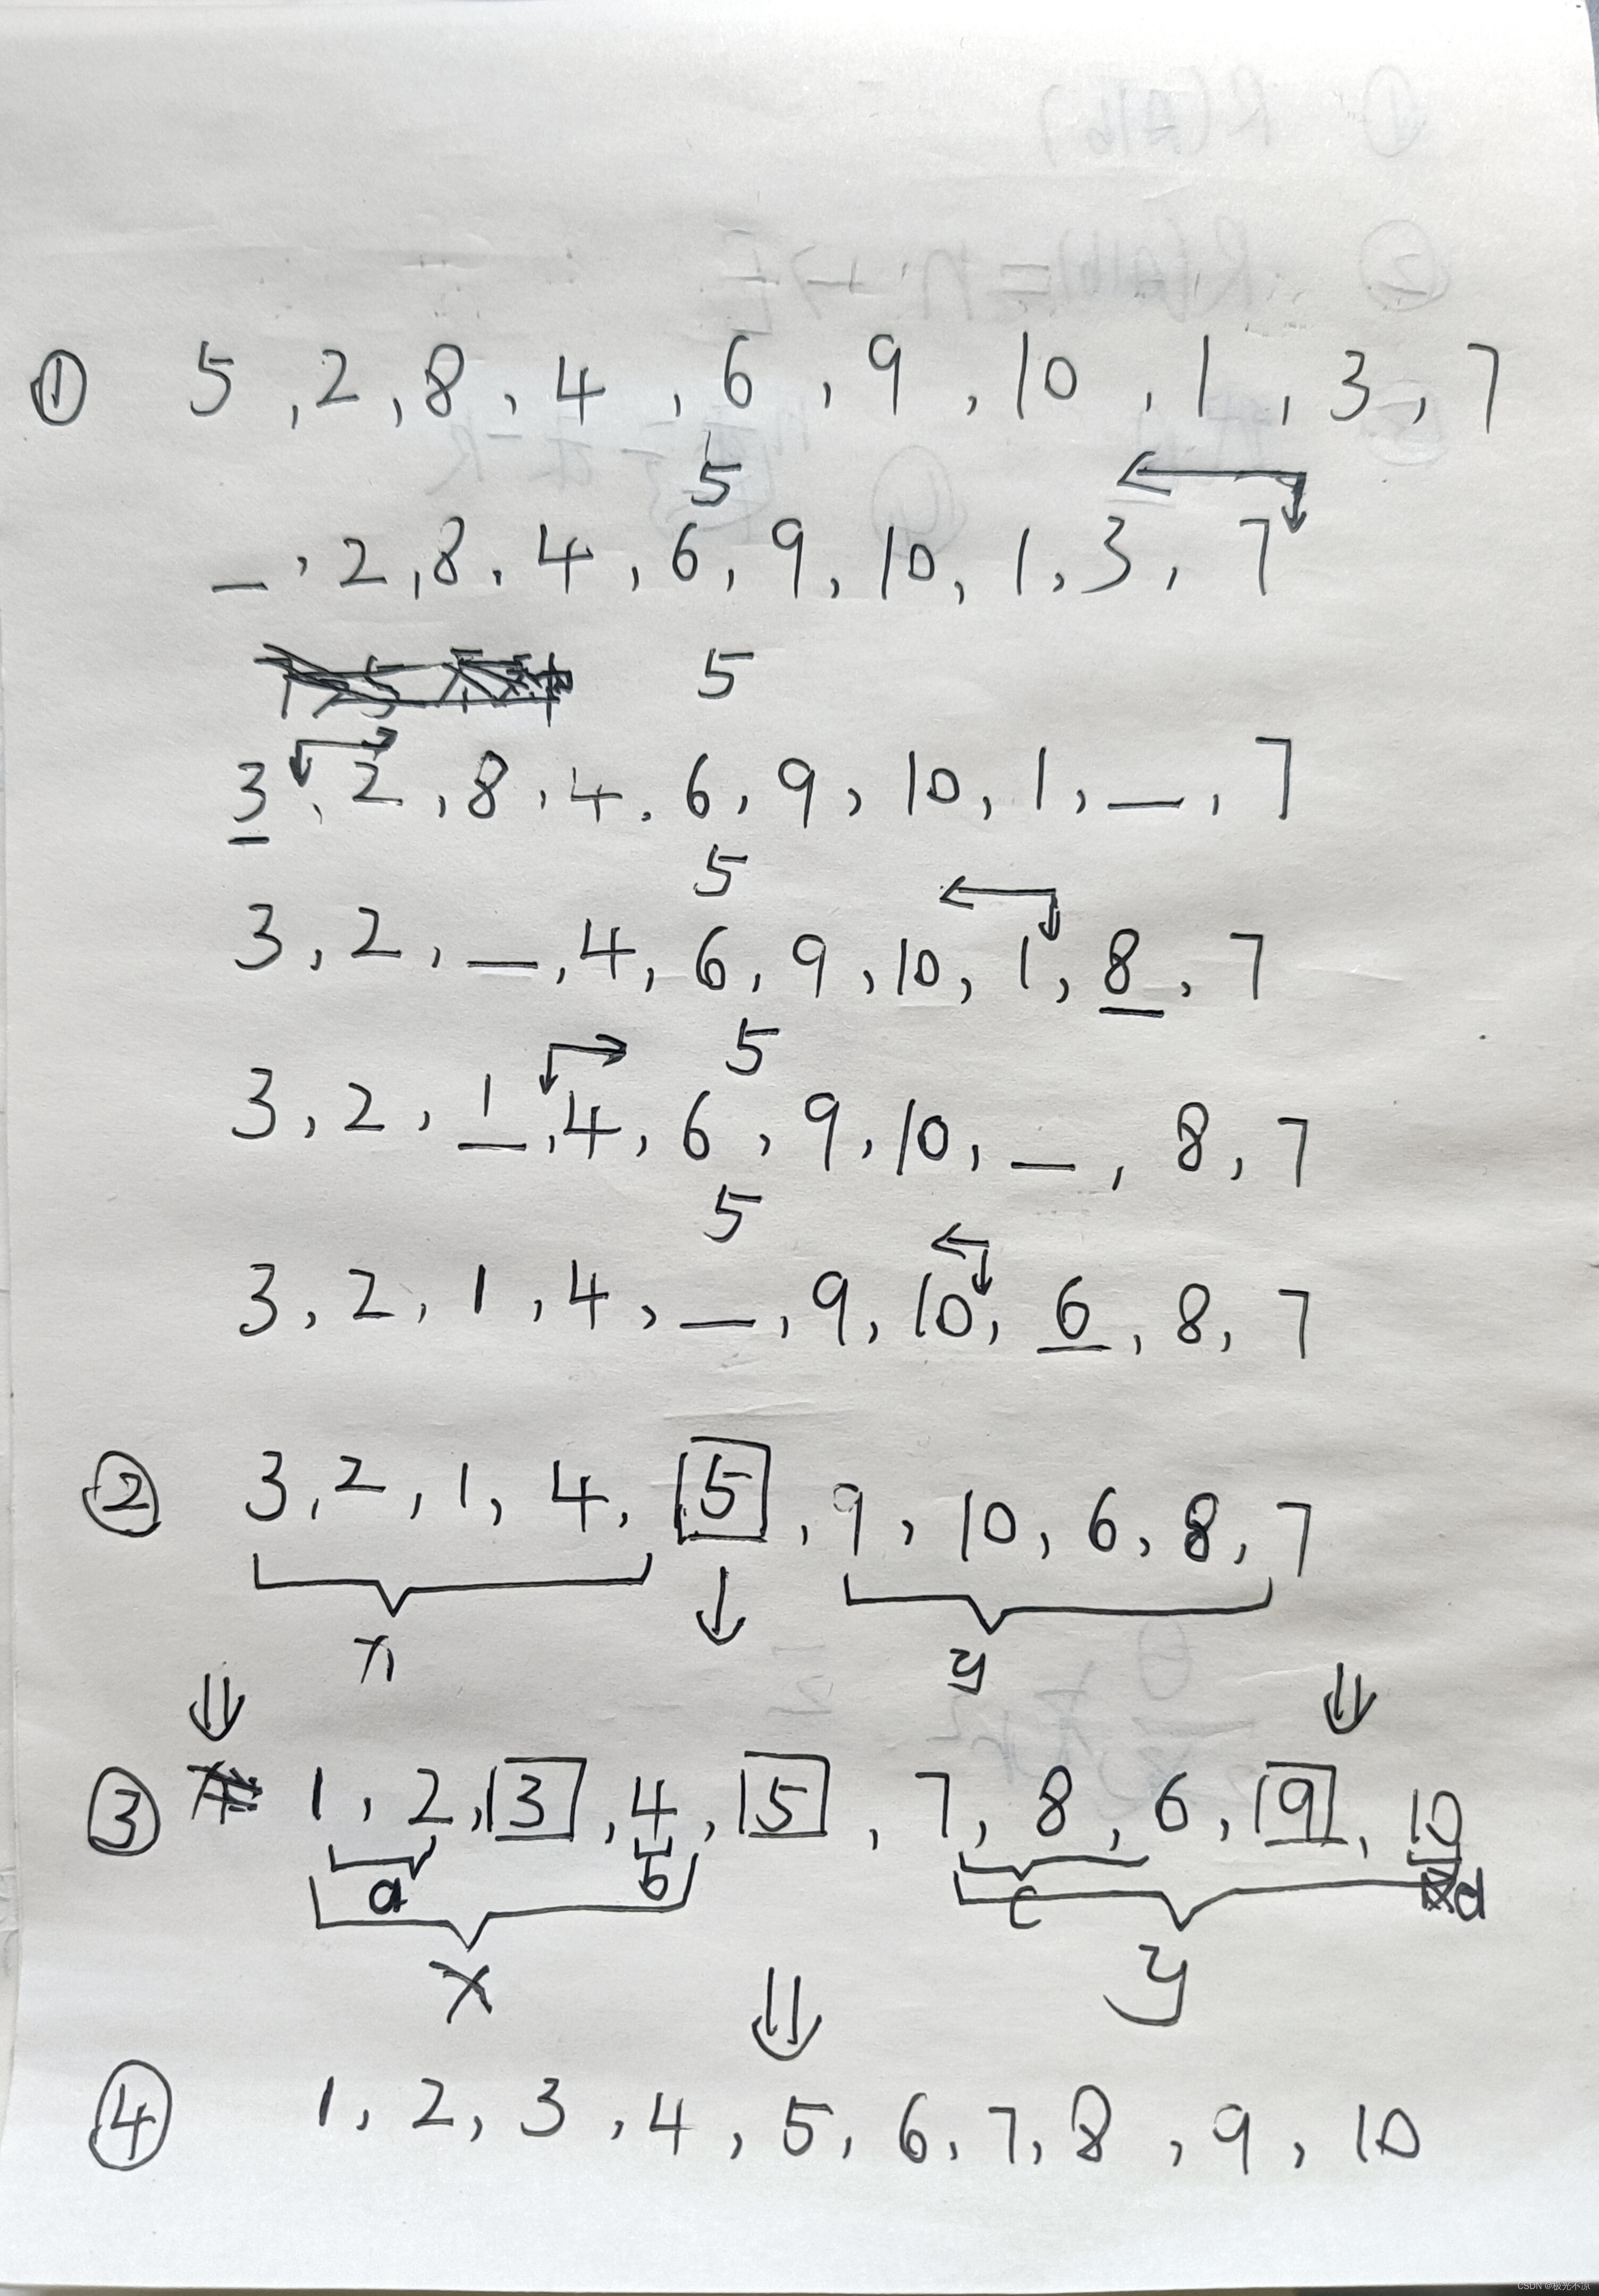 ① 5, 2, 8, 4, 6, 9, 10, 1, 3, 7
5
_, 2, 8, 4, 6, 9, 10, 1, 3, 7
5
3, 2, 8, 4, 6, 9, 10, 1, _, 7
5
3, 2, _, 4, 6, 9, 10, 1, 8, 7
5
3, 2, 1, 4, 6, 9, 10, _, 8, 7
5
3, 2, 1, 4, _, 9, 10, 6, 8, 7
② 3, 2, 1, 4, 5, 9, 10, 6, 8, 7
x y
③ 1, 2, 3, 4, 5, 7, 8, 6, 9, 10
a b c d
x y
④ 1, 2, 3, 4, 5, 6, 7, 8, 9, 10
CSDN @极光不凉